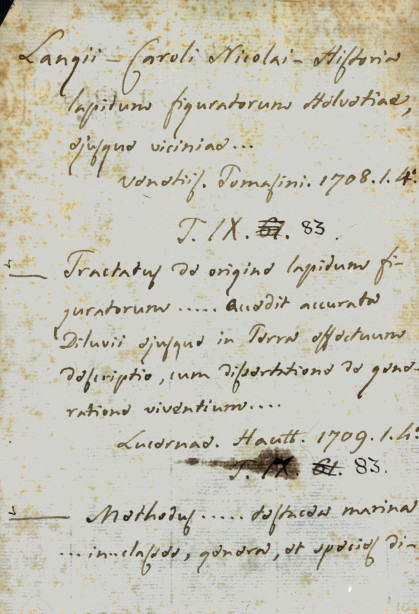 Langii - Caroli Nicolai - Historia
lapidum figuratorum Helvetiae,
ejusque viciniae...
Venetiis. Tomasini. 1708. 1. 4.°
T. IX. 61. 83.
— Tractatus de origine lapidum fi-
guratorum ..... accedit accurata
Diluvii ejusque in Terra effectuum
descriptio, cum dissertatione de gene-
ratione viventium....
Lucernae. Hautt. 1709. 1. 4.°
T. IX. 61. 83.
— Methodus ..... testacea marina
... in classes, genera, et species di-